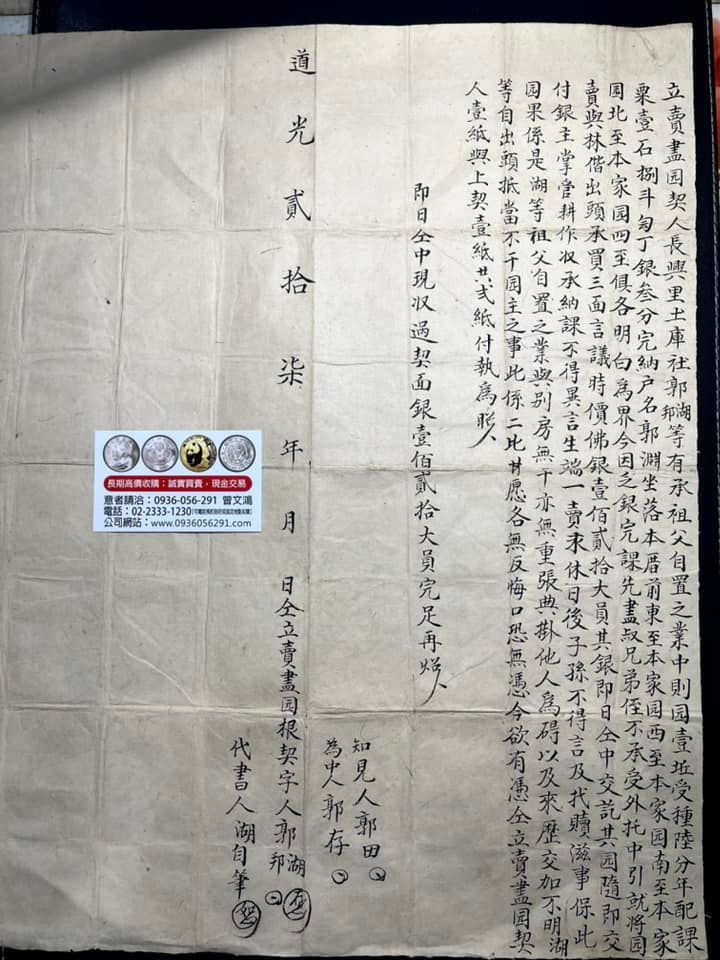 立賣盡园契人長興里土庫社郭湖邦等有承祖父自置之業中則园壹坵受種陸分年配課
粟壹石捌斗匀丁銀叁分完納户名郭淵坐落本厝前東至本家园西至本家园南至本家
园北至本家园四至俱各明白為界今因乏銀完課先盡叔兄弟侄不承受外托中引就將园
賣與林偕出頭承買三面言議時價佛銀壹佰貳拾大員其銀即日仝中交訖其园隨即交
付銀主掌管耕作收承納課不得異言生端一賣永休日後子孫不得言及找贖滋事保此
园果係是湖等祖父自置之業與别房無干亦無重張典掛他人為碍以及來歷交加不明湖
等自出頭抵當不干园主之事此係二比甘愿各無反悔口恐無憑今欲有憑仝立賣盡园契
人壹紙與上契壹紙共弍紙付執為炤
即日仝中現收過契面銀壹佰貳拾大員完足再炤
知見人郭田
為中人郭存
道光貳拾柒年 月 日仝立賣盡园根契字人郭湖邦
代書人湖自筆
長期高價收購：誠實買賣，現金交易
意者請洽：0936-056-291 曾文鴻
電話：02-2333-1230
公司網站：www.0936056291.com